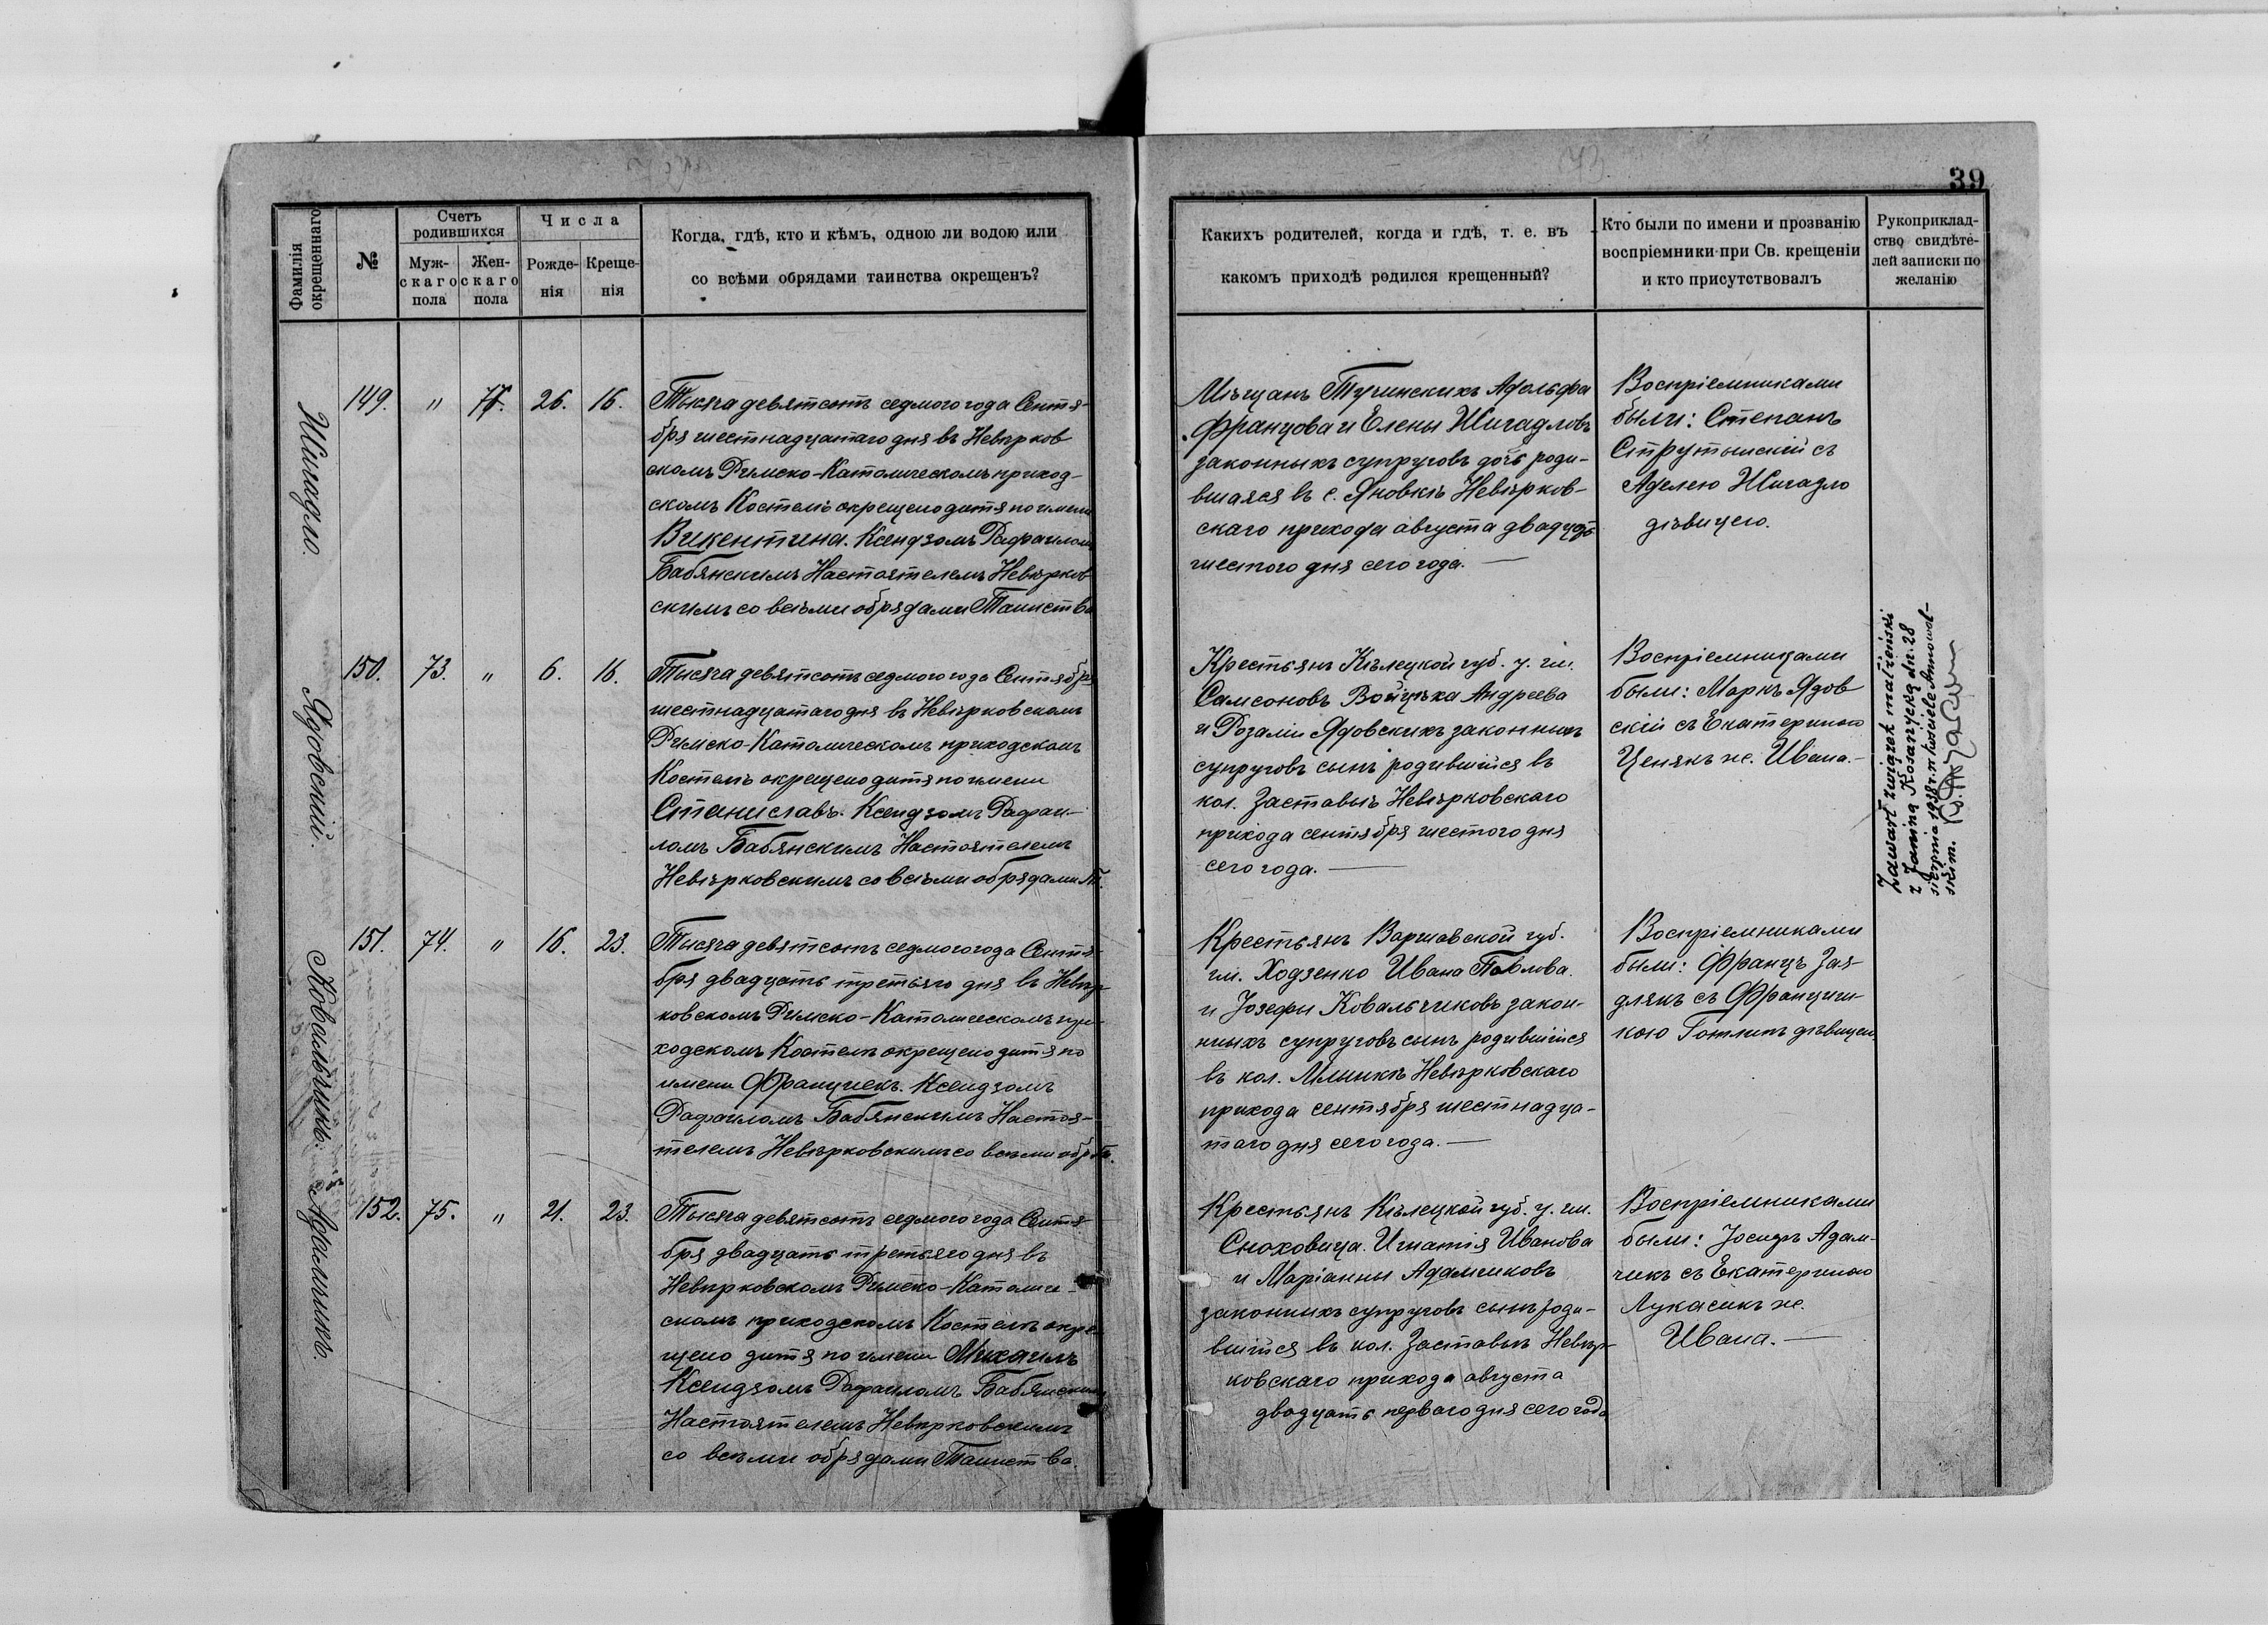 39
Фамилія окрещеннаго
№
Счетъ родившихся
Муж-
скаго
пола
Жен-
скаго
пола
Числа
Рожде-
нія
Креще-
нія
Когда, гдѣ, кто и кѣмъ, одною ли водою или
со всѣми обрядами таинства окрещенъ?
Какихъ родителей, когда и гдѣ, т. е. въ
какомъ приходѣ родился крещенный?
Кто были по имени и прозванію
воспріемники при Св. крещеніи
и кто присутствовалъ
Рукоприклад-
ство свидѣте-
лей записки по
желанію
Шигадло.
149. " 77. 26. 16.
Тысяча девятсотъ седмого года Сентя-
бря шестнадцатаго дня въ Невѣрков
скомъ Римско-Католическомъ приход-
скомъ Костелѣ окрещено дитя по имени
Викентина. Ксендзомъ Рафаиломъ
Бабянскимъ Настоятелемъ Невѣрков
скимъ со всѣми обрядами Таинства
Мѣщанъ Тучинскихъ Адольфа
Францова и Елены Шигадловъ
законныхъ супруговъ дочь роди-
вшаяся въ с. Яновкѣ Невѣрков-
скаго прихода августа двадцать
шестого дня сего года. —
Воспріемниками
были: Степанъ
Струтынскій съ
Аделею Шигадло
дѣвицею.
Ядовский.
150. 73. " 6. 16.
Тысяча девятсотъ седмого года Сентября
шестнадцатаго дня въ Невѣрковскомъ
Римско-Католическомъ приходскомъ
Костелѣ окрещено дитя по имени
Станиславъ. Ксендзомъ Рафаи-
ломъ Бабянскимъ Настоятелемъ
Невѣрковскимъ со всѣми обрядами Т.
Крестьянъ Кѣлецкой губ. у. гм.
Самсоновъ Войцѣха Андреева
и Розаліи Ядовскихъ законныхъ
супруговъ сынъ родившійся въ
кол. Заставьѣ Невѣрковскаго
прихода сентября шестого дня
сего года. —
Воспріемницами
были: Маркъ Ядов
скій съ Екатериною
Ценякъ ж. Ивана. —
Zawarł związek małżeński
z Janiną Kosarzycką dn. 28
sierpnia 1938 r. w kościele Annowol-
skim.
Ковальчикъ.
151. 74. " 16. 23.
Тысяча девятсотъ седмого года Сентя-
бря двадцать третьяго дня въ Невѣр
ковскомъ Римско-Католическомъ при-
ходскомъ Костелѣ окрещено дитя по
имени Францишекъ. Ксендзомъ
Рафаиломъ Бабянскимъ Настоя-
телемъ Невѣрковскимъ со всѣми обр. Т.
Крестьянъ Варшавской губ.
гм. Ходзенко Ивана Павлова
и Јозефы Ковальчиковъ закон-
ныхъ супруговъ сынъ родившійся
въ кол. Млынкѣ Невѣрковскаго
прихода сентября шестнадца-
таго дня сего года. —
Воспріемниками
были: Францъ Зая-
длякъ съ Францищ-
кою Готлипъ дѣвицею
Адамчикъ.
152. 75. " 21. 23.
Тысяча девятсотъ седмого года Сентя-
бря двадцать третьяго дня въ
Невѣрковскомъ Римско-Католиче-
скомъ приходскомъ Костелѣ окре-
щено дитя по имени Михаилъ
Ксендзомъ Рафаиломъ Бабянскимъ
Настоятелемъ Невѣрковскимъ
со всѣми обрядами Таинства.
Крестьянъ Кѣлецкой губ. у. гм.
Сноховица. Игнатія Иванова
и Маріанны Адамчиковъ
законныхъ супруговъ сынъ роди-
вшійся въ кол. Заставьѣ Невѣр-
ковскаго прихода августа
двадцать перваго дня сего года
Воспріемниками
были: Јосифъ Адам-
чикъ съ Екатериною
Лукасикъ ж.
Ивана. —